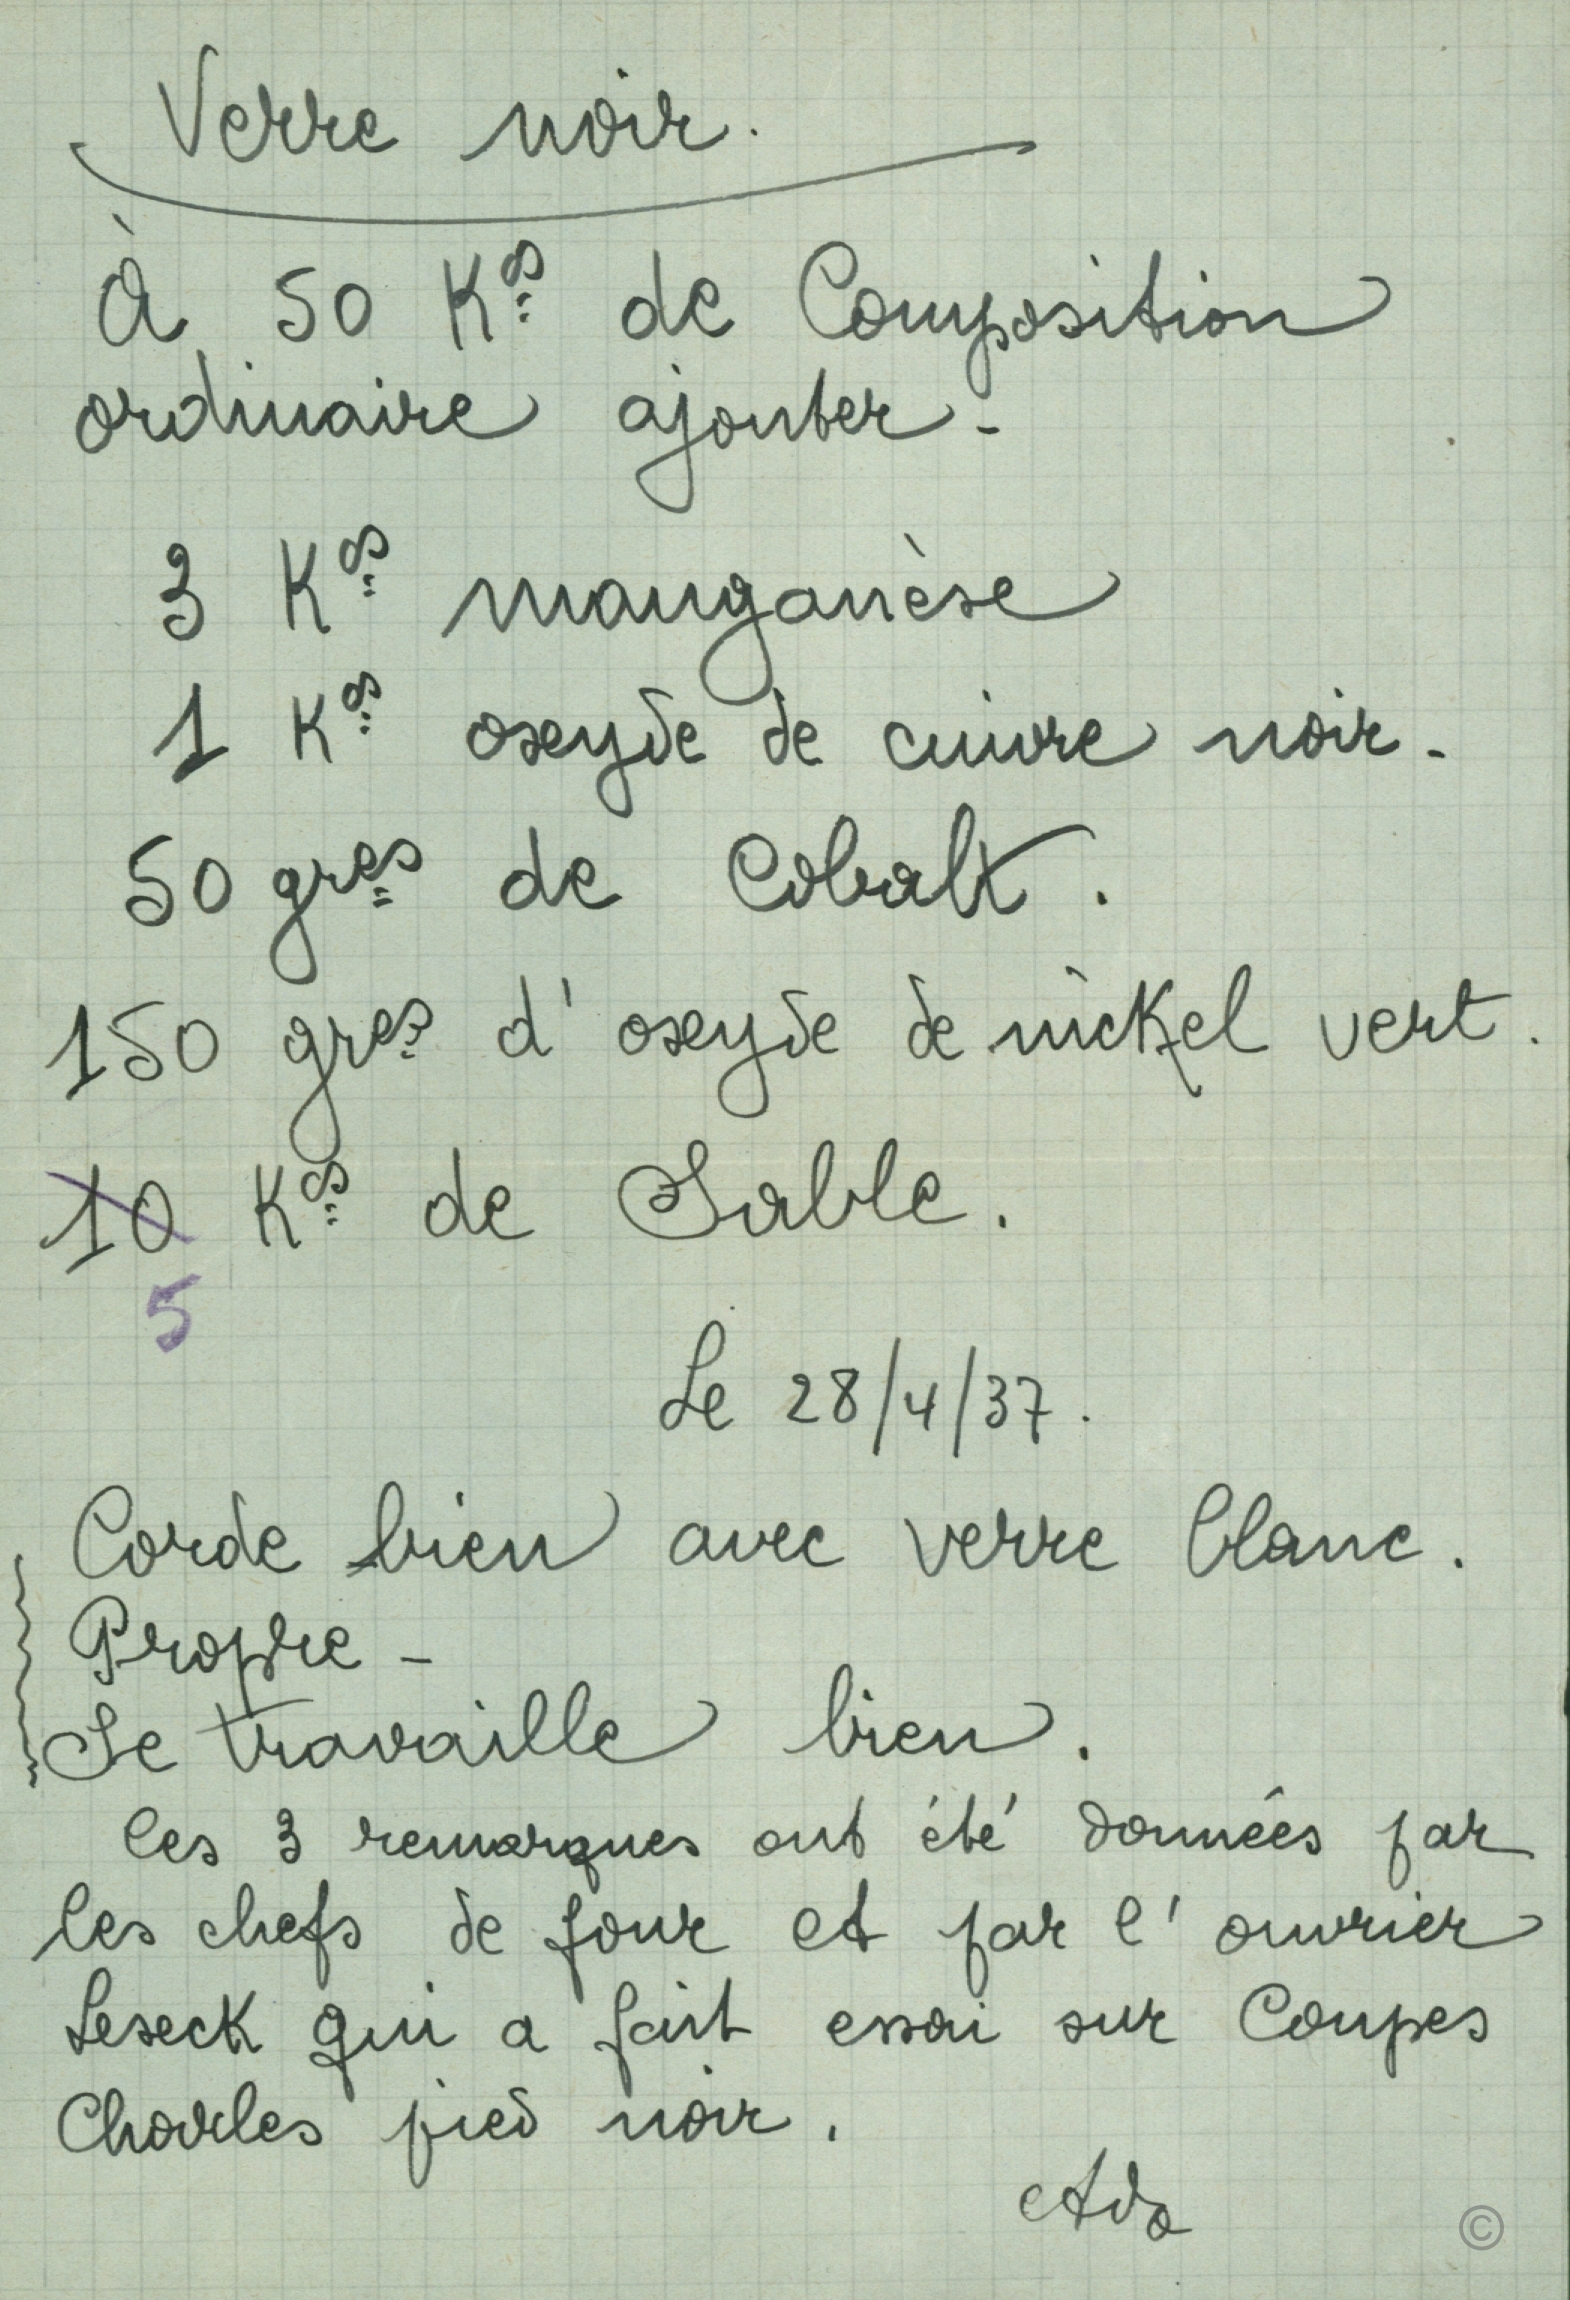 Verre noir.
À 50 Kgs de Composition
ordinaire ajouter -
3 Kgs manganèse
1 Kgs oxyde de cuivre noir -
50 gres de Cobalt.
150 gres d'oxyde de nickel vert.
10 Kgs de Sable.
5
Le 28/4/37.
Corde bien avec verre blanc.
Propre -
Se travaille bien.
Ces 3 remarques ont été données par
les chefs de four et par l'ouvrier
Leseck qui a fait essai sur Coupes
Charles pied noir.
©